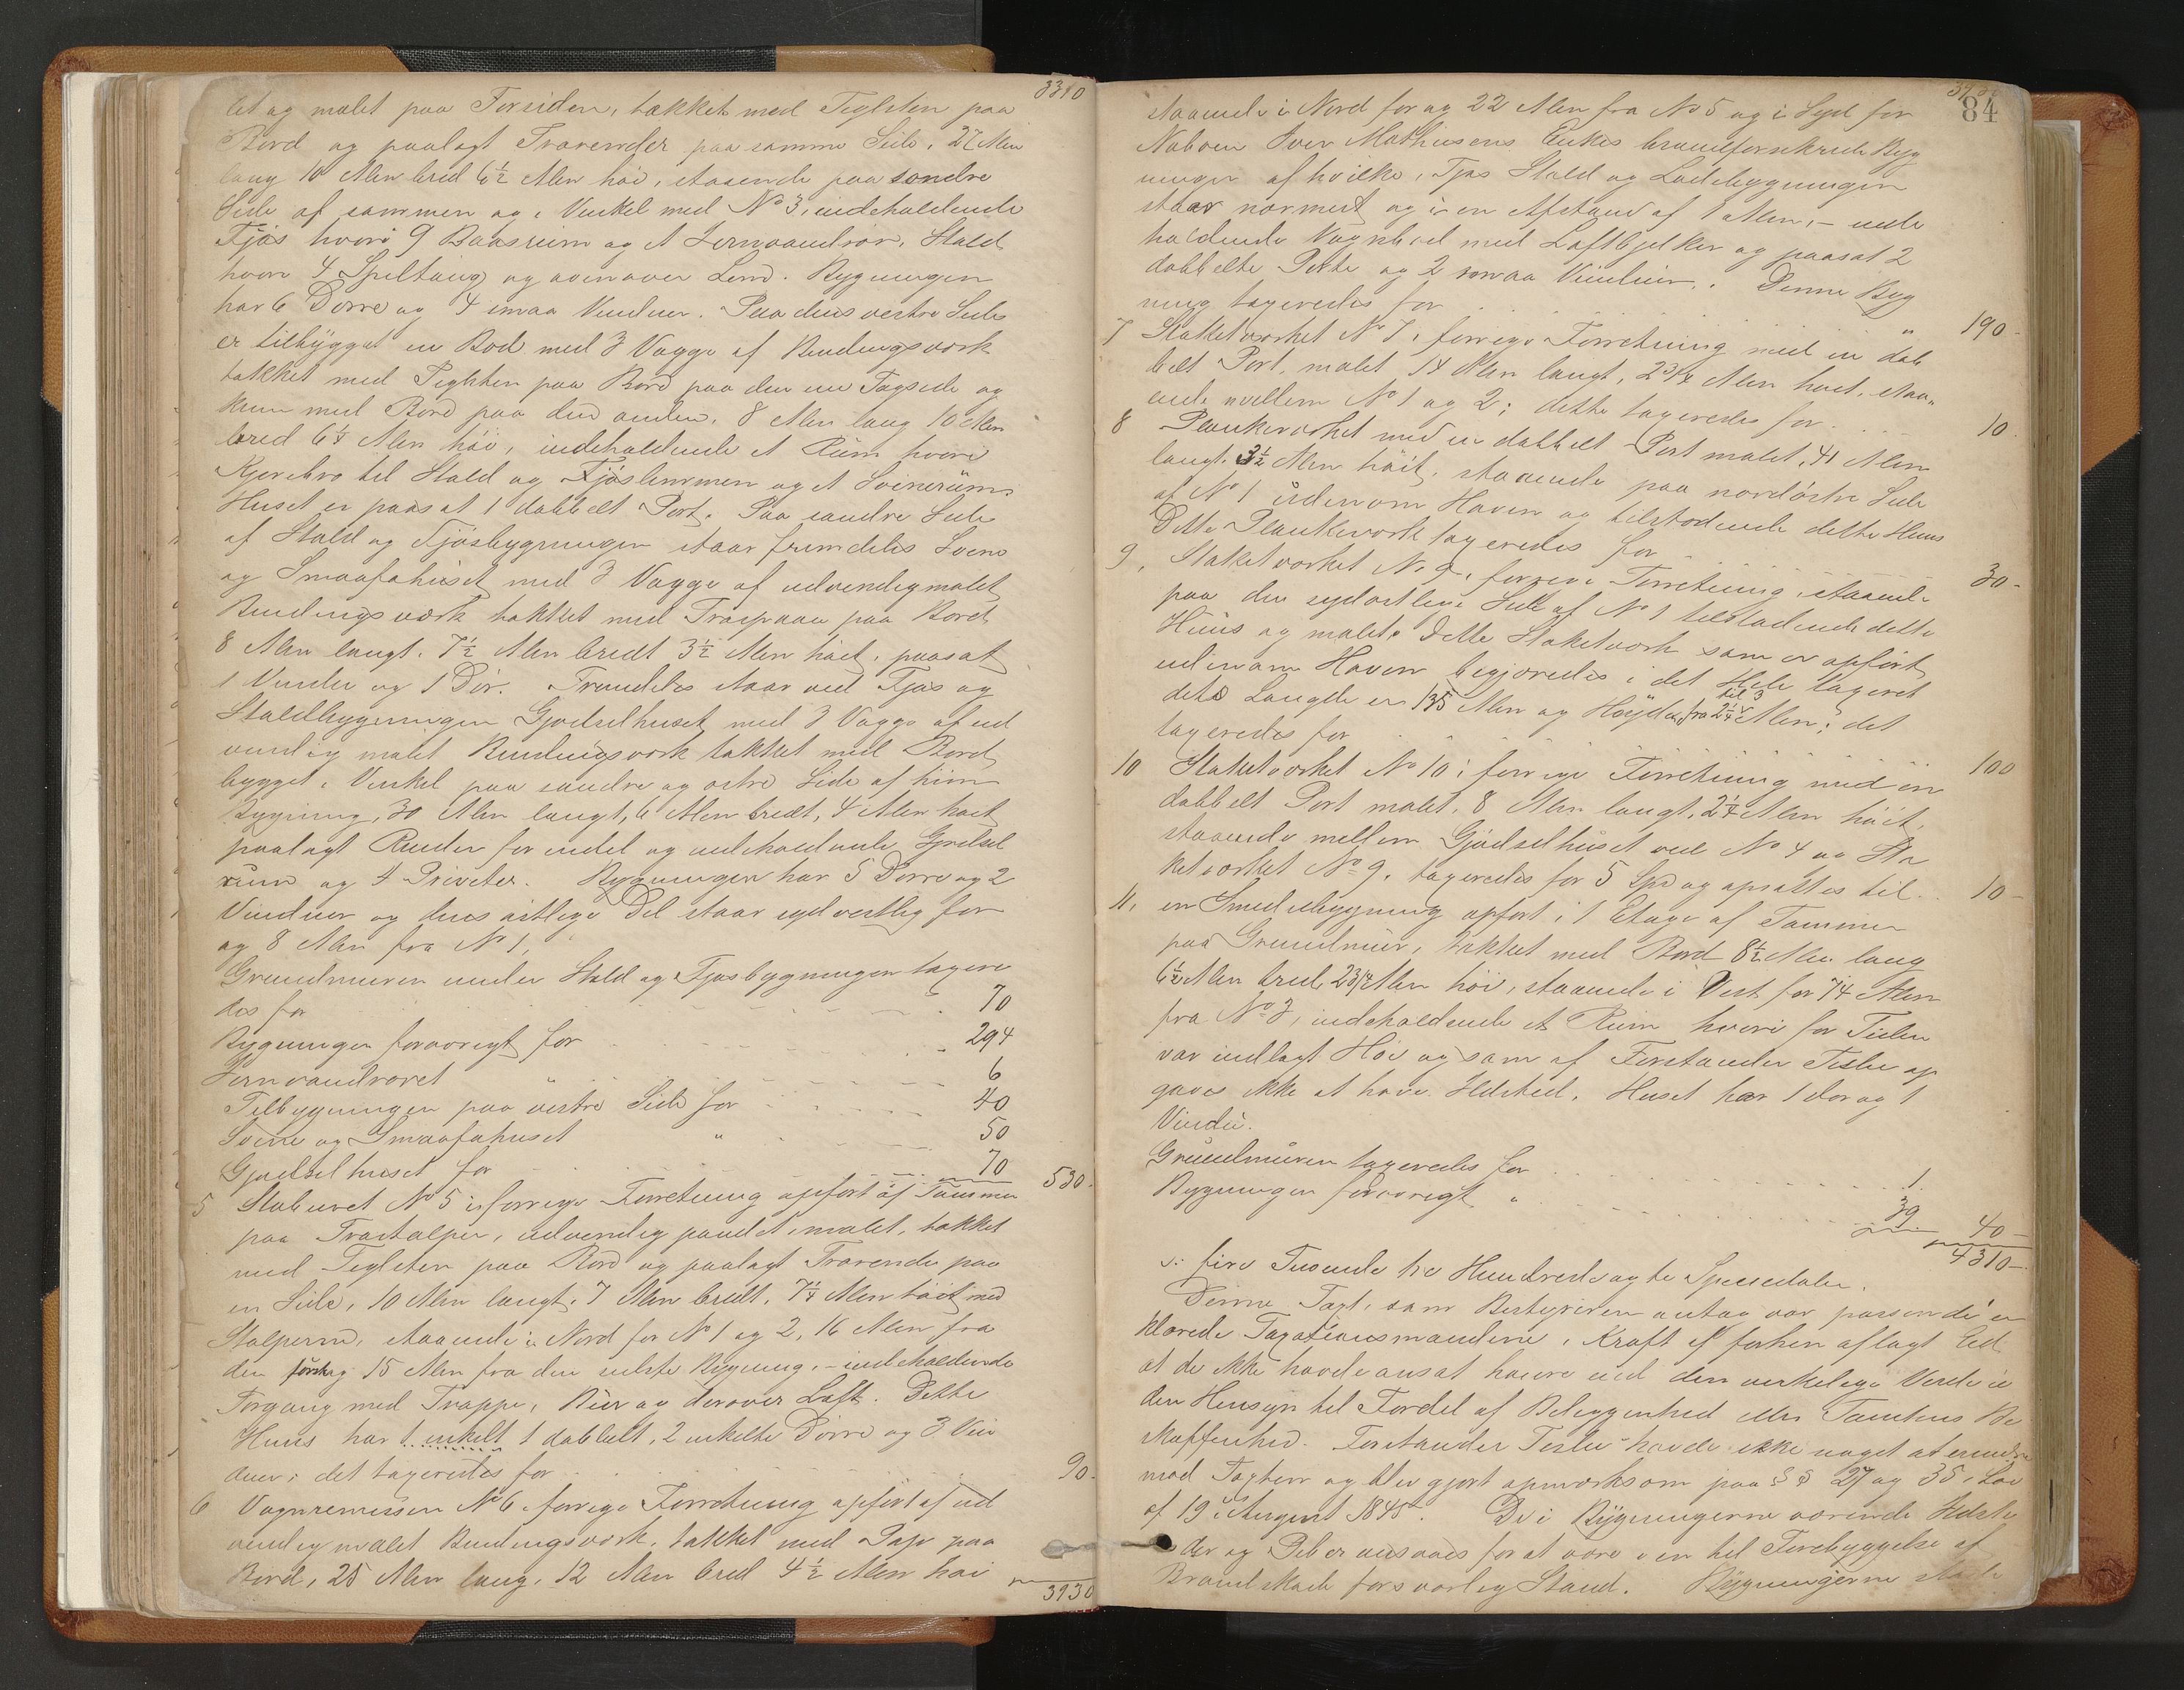 3310
let og malet paa Forsiden, tækket med Teglsten paa
Bord og paalagt Trærender paa samme Side, 27 Alen
lang 10 Alen bred 6½ Alen høi, staaende paa søndre
Side af sammen og i Vinkel med No 3, indeholdende
Fjøs hvori 9 Baasrum og et Jernvandrør, Stald
hvori 4 Spiltaug og ovenover Lem. Bygningen
har 6 Dørre og 4 smaa Vinduer. Paa dens vestre Side
er tilbygget en Bod med 3 Vægge af Bindingsværk
tækket med Teglsten paa Bord paa den ene Tagside og
kun med Bord paa den anden, 8 Alen lang 10 Alen
bred 6¼ Alen høi, indeholdende et Rum hvori
Kjørebro til Stald og Fjøslemmen og et Svinerum.
Huset er paasat 1 dobbelt Port. Paa søndre Side
af Stald og Fjøsbygningen staar fremdeles Svine
og Smaafæhuset med 3 Vægge af udvendig malet
Bindingsværk tækket med Træspaan paa Bord
8 Alen langt, 7½ Alen bredt 3½ Alen høit, paasat
1 Vindu og 1 Dør. Fremdeles staar ved Fjøs og
Staldbygningen Gjødselhuset med 3 Vægge af ud
vendig malet Bindingsværk tækket med Bord
bygget i Vinkel paa søndre og østre Side af hiin
Bygning, 30 Alen langt, 6 Alen bredt, 4 Alen høit
paalagt Render for endel og indeholdende Gjødsel
rum og 4 Priveter. Bygningen har 5 Dørre og 2
Vinduer og dens østlige Del staar sydvestlig for
og 8 Alen fra No 1.
Grundmuren under Stald og Fjøsbygningen taxere
des for 70
Bygningen forøvrigt for 294
Jernvandrøret " 6
Tilbygningen paa vestre Side for 40
Svine og Smaafæhuset " 50
Gjødselhuset for 70 530.
5 Staburet No 5 i forrige Forretning opført af Tømmer
paa Træstolper, udvendig pandet, malet, tækket
med Teglsten paa Bord og paalagt Trærende paa
en Side, 10 Alen langt, 7 Alen bredt, 7¼ Alen høit med
Stolperne, staaende i Nord for No 1 og 2, 16 Alen fra
den første og 15 Alen fra den sidste Bygning, – indeholdende
Forgang med Trappe, Bur og derover Loft. Dette
Huus har 1 enkelt 1 dobbelt, 2 enkelte Dørre og 3 Vin
duer; det taxeredes for 90.
6 Vognremissen No 6 i forrige Forretning opført af ud
vendig malet Bindingsværk, tækket med Pap paa
Bord, 25 Alen lang, 12 Alen bred 4½ Alen høi
3930
3930
84
staaende i Nord for og 22 Alen fra No 5 og i Syd for
Naboen Iver Mathiesens Enkes brandforsikrede Byg
ninger af hvilke, Fjøs Stald og Ladebygningen
staar nærmest og i en Afstand af 1 Alen, – inde
holdende Vognskul med Loftbjelker og paasat 2
dobbelte Porte og 2 smaa Vinduer. Denne Byg
ning taxeredes for " 190 –
7 Staketværket No 7 i forrige Forretning med en dob
belt Port, malet, 14 Alen langt, 2 3/4 Alen høit, staa-
ende mellem No 1 og 2; dette taxeredes for 10
8 Plankeværket med en dobbelt Port malet, 41 Alen
langt, 3½ Alen høit, staaende paa nordøstre Side
af No 1 udenom Haven og tilstødende dette Huus
Dette Plankeværk taxeredes for 30 –
9, Staketværket No 9 i forrige Forretning, staaende
paa den sydøstlige Side af No 1 tilstødende dette
Huus og malet. Dette Staketværk som er opført
udenom Haven begjæredes i det Hele taxeret
dets Længde er 135 Alen og Høyden fra 2¼ til 3 Alen; det
taxeredes for 100
10 Staketværket No 10 i forrige Forretning med en
dobbelt Port malet, 8 Alen langt, 2¼ Alen høit,
staaende mellem Gjødselhuset ved No 4 og Sta
ketværket No 9, taxeredes for 5 Spd og opsattes til 10 –
11, en Smedebygning opført i 1 Etage af Tømmer
paa Grundmur, tækket med Bord 8½ Alen lang
6½ Alen bred 2 3/4 Alen høi, staaende i Vest for 74 Alen
fra No 3, indeholdende et Rum hvori for Tiden
var indlagt Hø og som af Forstander Teslie op
gaves ikke at have Ildsted. Huset har 1 dør og 1
Vindu.
Grundmuren taxeredes for 1
Bygningen forøvrigt " 39 40 –
4310 –
s: fire Tusende tre Hundrede og ti Speciedaler.
Denne Taxt, som Bestyreren antog var passende er
klærede Taxationsmændene, i Kraft af forhen aflagt Eed
at de ikke havde ansat høiere end den virkelige Værdi u
den Hensyn til Fordel af Beliggenhed eller Tomtens Be
skaffenhed. Forstander Teslie havde ikke noget at erindre
mod Taxten og blev gjort opmærksom paa §§ 27 og 35 i Lov
af 19 August 1845. De i Bygningerne værende Ildste
der og Piber ansaaes for at være i en til Forebyggelse af
Brandskade forsvarlig Stand. Bygningerne staae